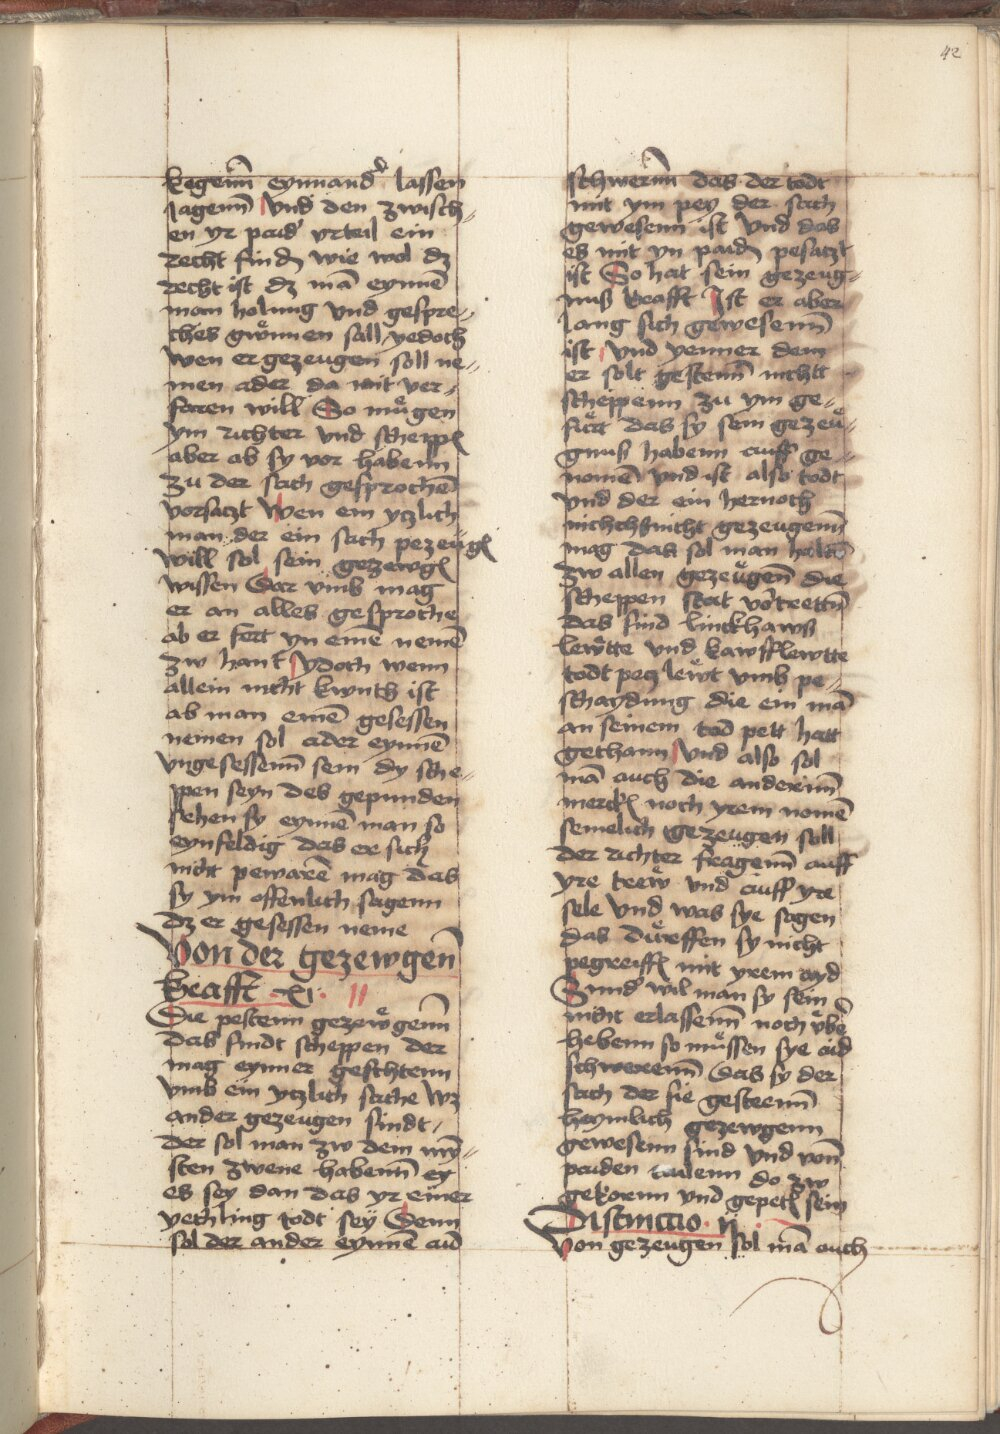 42
kegeim̄ eynnandʾ lassen
sagenn̄ Vnd den zwisch„
en yr paidʾ vrteil ein
recht finden wie wol dz
recht ist dz mā eynnē
man holung vnd gespre„
ches gwönnen sall yedoch
wen er gezeugen soll ne„
men ader da mit ver„
faren will So mügen
ym richter vnd scheppen
aber ab sy vor habenn
zu der sach gesprochē
vorsatzt Wen ein yczlich
man der ein sach pezeugen
will sol sein gezewgen
wissen Dar vmb mag
er an alles gesproche
ab er fert yn einē nemē
zw hant Ydoch wenn
allein nicht kwnth ist
ab man einē gesessen
nemen sol ader eynnē
vngesessenn̄ sem dy sche„
ppen seyn des gepunden
sehen sy eynnē man so
eynfeldig das er sich
nicht pewarē mag das
sy ym offenlich sagenn
dz er gesessen neme
Von der gezewgenn̄
krafft .xi.
Die pestenn gezewgenn̄
das sindt scheppen der
mag eynner geschtenn
vmb ein yczlich sache wz
ander gezeugen sindt,
der sol man zw dem my̅„
sten zwene habenn̄ ey
es sey dan das yr einer
yechling todt sey Denn
sol der ander eynnē aid
schwerenn̄ das der todt
mit ym pey der sach
gewesenn ist Vnd das
es mit yn paiden pesatzt
ist So hat sein gezeug„
nuß krafft Ist er aber
lang sich gewesenn̄
ist Vnd yenner dem
er solt gestenn̄ nichtt
scheppenn zu ym ge„
fürt das sy sein gezeu„
gnuß habenn auff ge„
nomē vnd ist also todt
vnd der ein hernoch
nicht gezeugenn̄
mag das sol man haldē
zw allen gezeugenn̄ die
scheppen stat vortrettn̄
das sind linckhawß
lewtte vnd kawfflewtte
todt pecz lewt vmb pe„
schaydung die ein mā
an seinem tod pett hatt
gethann Vnd also sol
mā auch die anderinn̄
mercken noch yrem nomē
semelich gezeugen soll
der richter fragenn̄ auff
yre trew vnd auff yre
sele Vnd was sye sagen
das dürffen sy nicht
pegreiffen mit yrem ayd
Sundʾ wil man sy sein
nicht erlassenn̄ noch vber
hebenn so müssen sye aid
schwerenn̄ das sy der
sach der sie gesteenn̄
heymlich gezewgenn
gewesenn sind vnd vonn̄
paiden tailenn do zw
gekorenn vnd gepeten sein
Distinccio ij
Von gezeugen sol mā auch